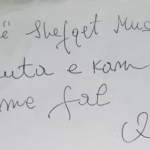 Shefqet Mus
uta e kam
me fal